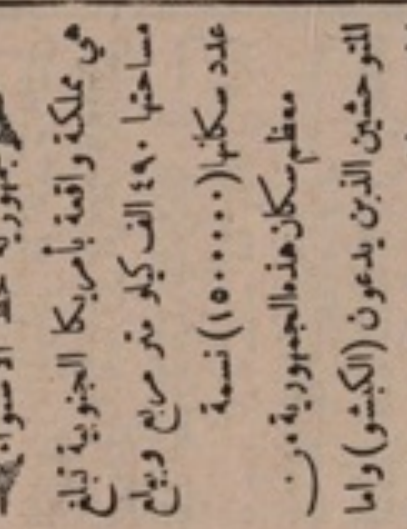 جمهورية خط الاستواء
هي مملكة واقعة بأمريكا الجنوبية تبلغ
مساحتها ٤٩٠ الف كيلو متر مربع ويبلغ
عدد سكانها (١٥٠٠٠٠٠) نسمة
معظم سكان هذه الجمهورية من
المتوحشين الذين يدعون (الكبشو) واما